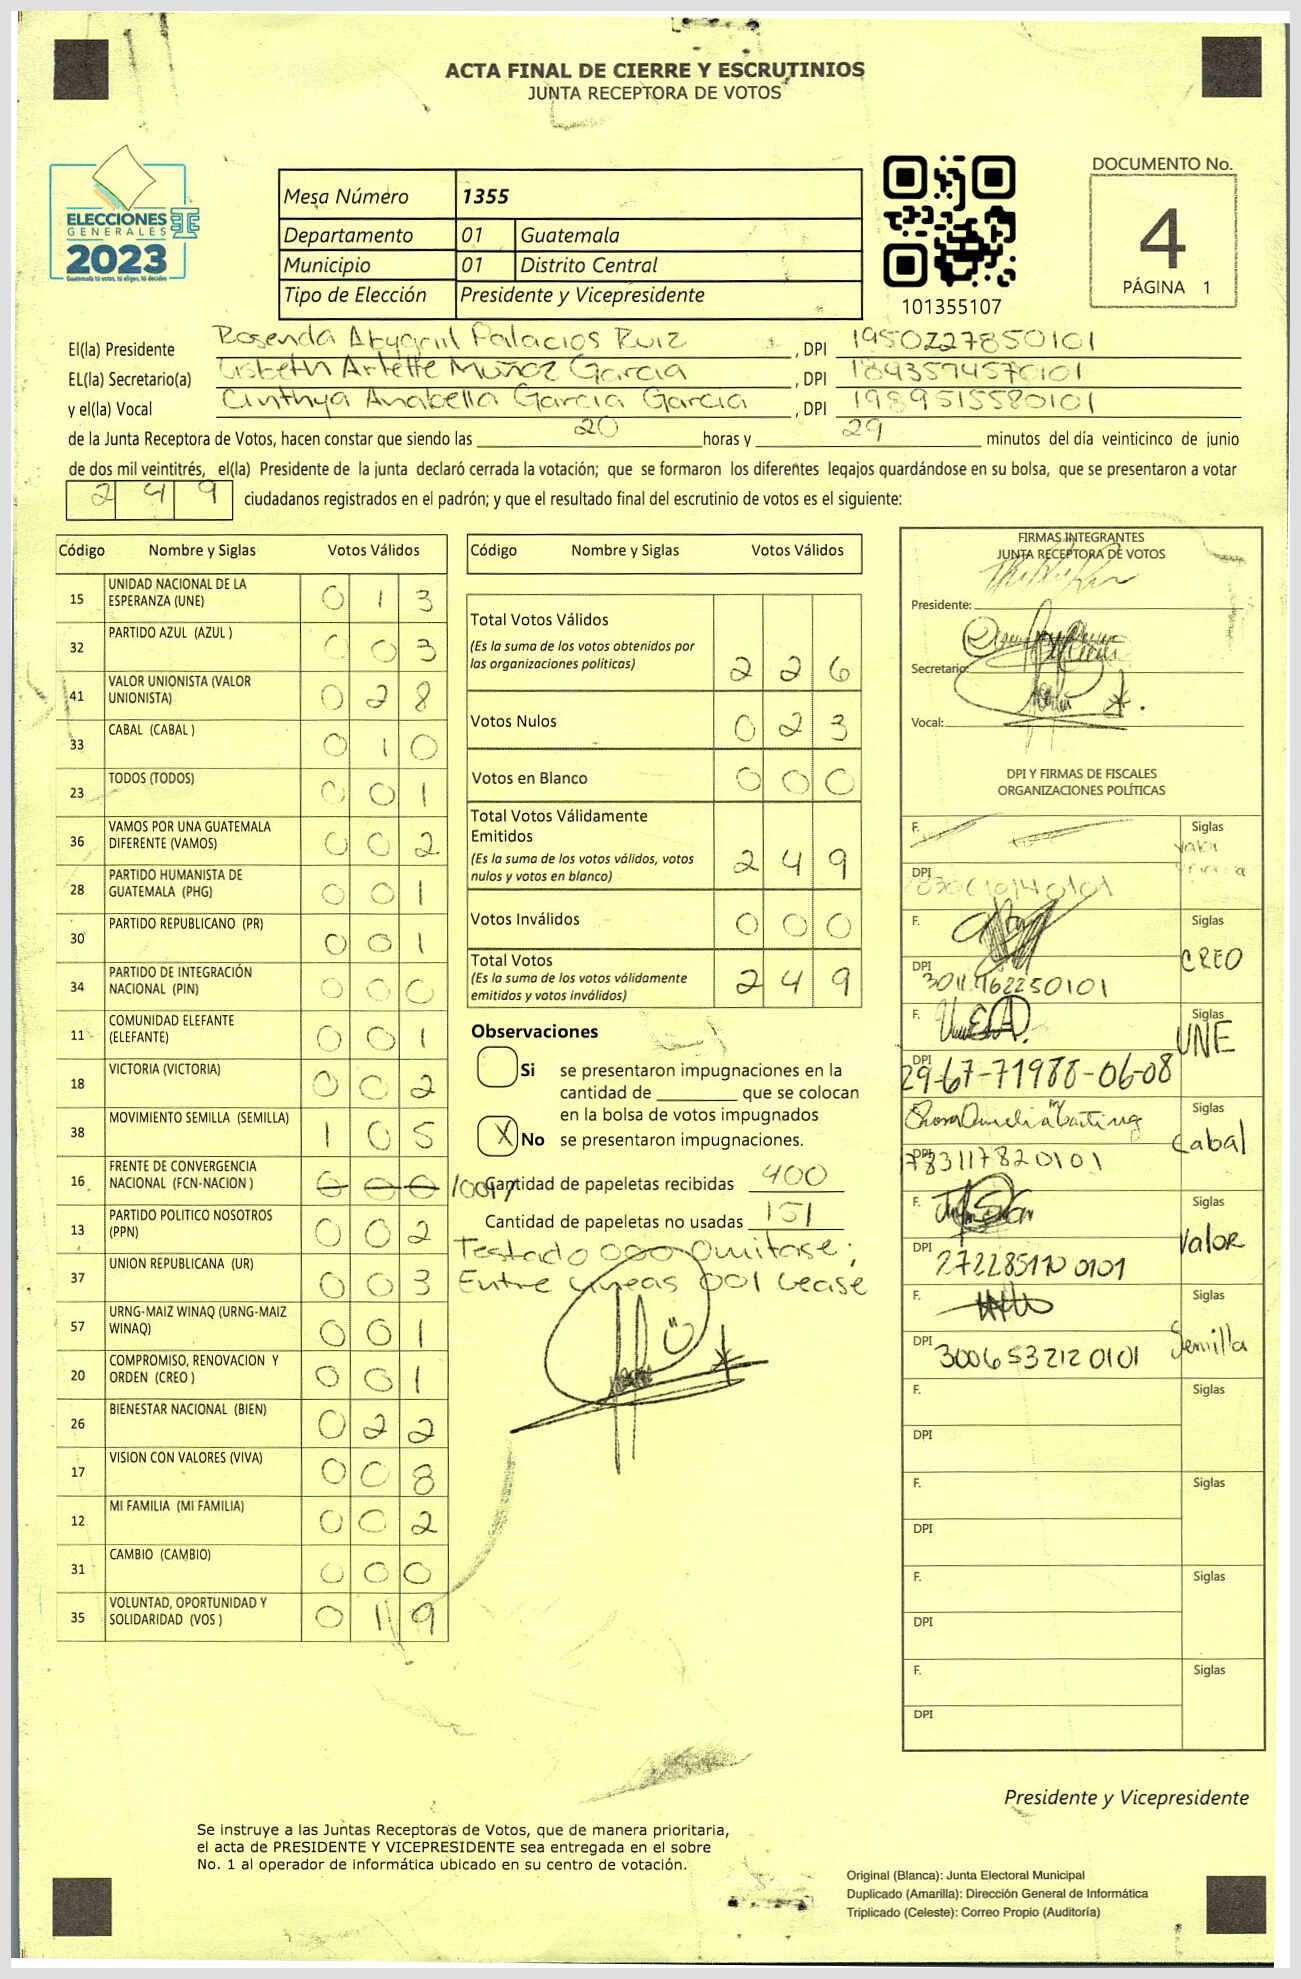 ACTA FINAL DE CIERRE Y ESCRUTINIOS
JUNTA RECEPTORA DE VOTOS
ELECCIONES
GENERALES
2023
Guatemala tú votas, tú eliges, tú decides
Mesa Número 1355
Departamento 01 Guatemala
Municipio 01 Distrito Central
Tipo de Elección Presidente y Vicepresidente
101355107
DOCUMENTO No.
4
PÁGINA 1
El(la) Presidente Rosenda Palacios Ruiz, DPI 1950227850101
EL(la) Secretario(a) Lisbeth Arlette Muñoz Garcia, DPI 1843594570101
y el(la) Vocal Cinthya Anabella Garcia Garcia, DPI 1989515580101
de la Junta Receptora de Votos, hacen constar que siendo las 20 horas y 29 minutos del día veinticinco de junio
de dos mil veintitrés, el(la) Presidente de la junta declaró cerrada la votación; que se formaron los diferentes legajos quardándose en su bolsa, que se presentaron a votar
2 4 9 ciudadanos registrados en el padrón; y que el resultado final del escrutinio de votos es el siguiente:
Código Nombre y Siglas Votos Válidos
15 UNIDAD NACIONAL DE LA ESPERANZA (UNE) 0 1 3
32 PARTIDO AZUL (AZUL ) 0 0 3
41 VALOR UNIONISTA (VALOR UNIONISTA) 0 2 8
33 CABAL (CABAL ) 0 1 0
23 TODOS (TODOS) 0 0 1
36 VAMOS POR UNA GUATEMALA DIFERENTE (VAMOS) 0 0 2
28 PARTIDO HUMANISTA DE GUATEMALA (PHG) 0 0 1
30 PARTIDO REPUBLICANO (PR) 0 0 1
34 PARTIDO DE INTEGRACIÓN NACIONAL (PIN) 0 0 0
11 COMUNIDAD ELEFANTE (ELEFANTE) 0 0 1
18 VICTORIA (VICTORIA) 0 0 2
38 MOVIMIENTO SEMILLA (SEMILLA) 1 0 5
16 FRENTE DE CONVERGENCIA NACIONAL (FCN-NACION ) 0 0 0 /001/
13 PARTIDO POLITICO NOSOTROS (PPN) 0 0 2
37 UNION REPUBLICANA (UR) 0 0 3
57 URNG-MAIZ WINAQ (URNG-MAIZ WINAQ) 0 0 1
20 COMPROMISO, RENOVACION Y ORDEN (CREO ) 0 0 1
26 BIENESTAR NACIONAL (BIEN) 0 2 2
17 VISION CON VALORES (VIVA) 0 0 8
12 MI FAMILIA (MI FAMILIA) 0 0 2
31 CAMBIO (CAMBIO) 0 0 0
35 VOLUNTAD, OPORTUNIDAD Y SOLIDARIDAD (VOS ) 0 1 9
Código Nombre y Siglas Votos Válidos
Total Votos Válidos
(Es la suma de los votos obtenidos por
las organizaciones políticas) 2 2 6
Votos Nulos 0 2 3
Votos en Blanco 0 0 0
Total Votos Válidamente
Emitidos
(Es la suma de los votos válidos, votos
nulos y votos en blanco) 2 4 9
Votos Inválidos 0 0 0
Total Votos
(Es la suma de los votos válidamente
emitidos y votos inválidos) 2 4 9
Observaciones
Si se presentaron impugnaciones en la
cantidad de ________ que se colocan
en la bolsa de votos impugnados
X No se presentaron impugnaciones.
Cantidad de papeletas recibidas 400
Cantidad de papeletas no usadas 151
Testado 000 Omitase;
Entre lineas 001 Lease
FIRMAS INTEGRANTES
JUNTA RECEPTORA DE VOTOS
Presidente:
Secretario:
Vocal:
DPI Y FIRMAS DE FISCALES
ORGANIZACIONES POLÍTICAS
F. Siglas
DPI
F. Siglas CREO
DPI
F. Siglas UNE
DPI 29-67-71988-06-08
Siglas Cabal
DPI 783117820101
F. Siglas Valor
DPI 272285170 0101
F. Siglas Semilla
DPI 3006532120101
F. Siglas
DPI
F. Siglas
DPI
F. Siglas
DPI
F. Siglas
DPI
Presidente y Vicepresidente
Se instruye a las Juntas Receptoras de Votos, que de manera prioritaria,
el acta de PRESIDENTE Y VICEPRESIDENTE sea entregada en el sobre
No. 1 al operador de informática ubicado en su centro de votación.
Original (Blanca): Junta Electoral Municipal
Duplicado (Amarilla): Dirección General de Informática
Triplicado (Celeste): Correo Propio (Auditoría)